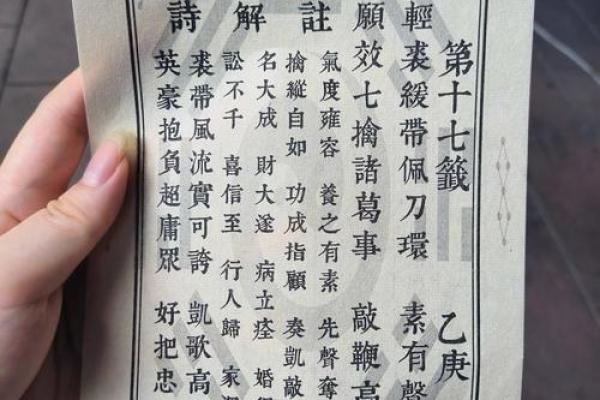 第十七籤 乙庚
輕裘緩帶佩刀環 素有聲
願效七擒諸葛事 敲鞭高
註
氣度雍容 養之有素 先聲奪
擒縱自如 功成指顧 奏凱敲
解
名大成 財大遂 病立痊 婚
訟不千 喜信至 行人歸 家
詩
裘帶風流實可誇 凱歌高
英豪抱負超庸眾 好把忠